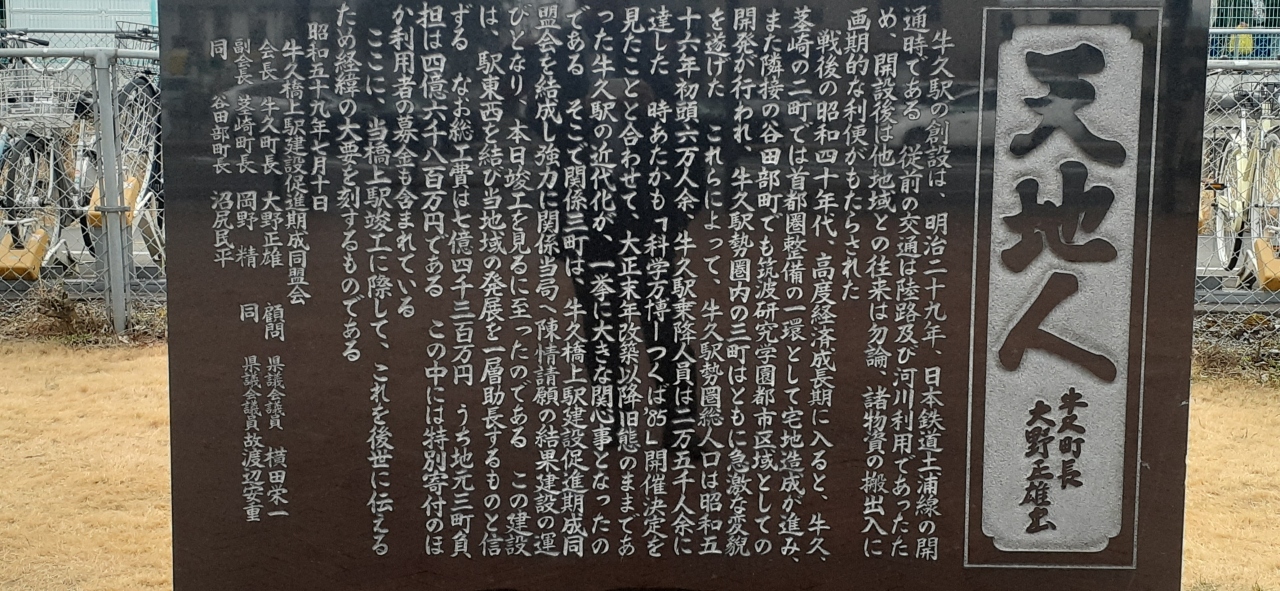 天地人
牛久町長
大野正雄書
牛久駅の創設は、明治二十九年、日本鉄道土浦線の開
通時である 従前の交通は陸路及び河川利用であったた
め、開設後は他地域との往来は勿論、諸物資の搬出入に
画期的な利便がもたらされた
戦後の昭和四十年代、高度経済成長期に入ると、牛久、
茎崎の二町では首都圏整備の一環として宅地造成が進み、
また隣接の谷田部町でも筑波研究学園都市区域としての
開発が行われ、牛久駅勢圏内の三町はともに急激な変貌
を遂げた これらによって、牛久駅勢圏総人口は昭和五
十六年初頭六万人余 牛久駅乗降人員は二万五千人余に
達した 時あたかも「科学万博ーつくば'85」開催決定を
見たことと合わせて、大正末年改築以降旧態のままであ
った牛久駅の近代化が、一挙に大きな関心事となったの
である そこで関係三町は、牛久橋上駅建設促進期成同
盟会を結成し強力に関係当局へ陳情請願の結果建設の運
びとなり、本日竣工を見るに至ったのである この建設
は、駅東西を結び当地域の発展を一層助長するものと信
ずる なお総工費は七億四千三百万円 うち地元三町負
担は四億六千八百万円である この中には特別寄付のほ
か利用者の募金も含まれている
ここに、当橋上駅竣工に際して、これを後世に伝える
ため経緯の大要を刻するものである
昭和五十九年七月十日
牛久橋上駅建設促進期成同盟会
会長 牛久町長 大野正雄 顧問 県議会議員 横田栄一
副会長 茎崎町長 岡野精 同 県議会議員故渡辺安重
同 谷田部町長 沼尻民平